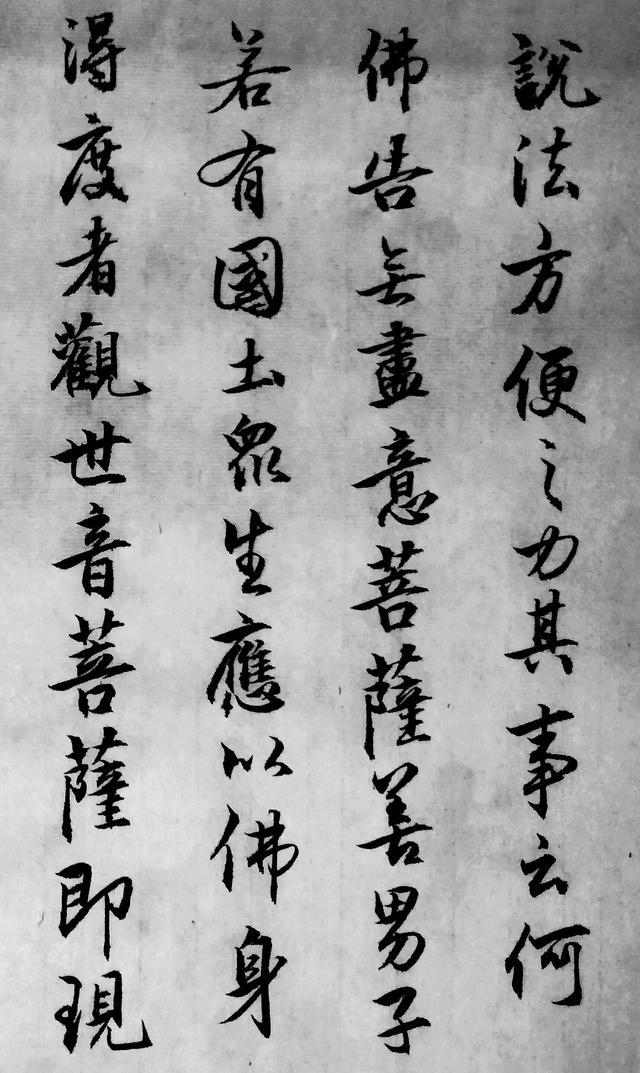 說法方便之力其事云何
佛告无盡意菩薩善男子
若有國土眾生應以佛身
得度者觀世音菩薩即現